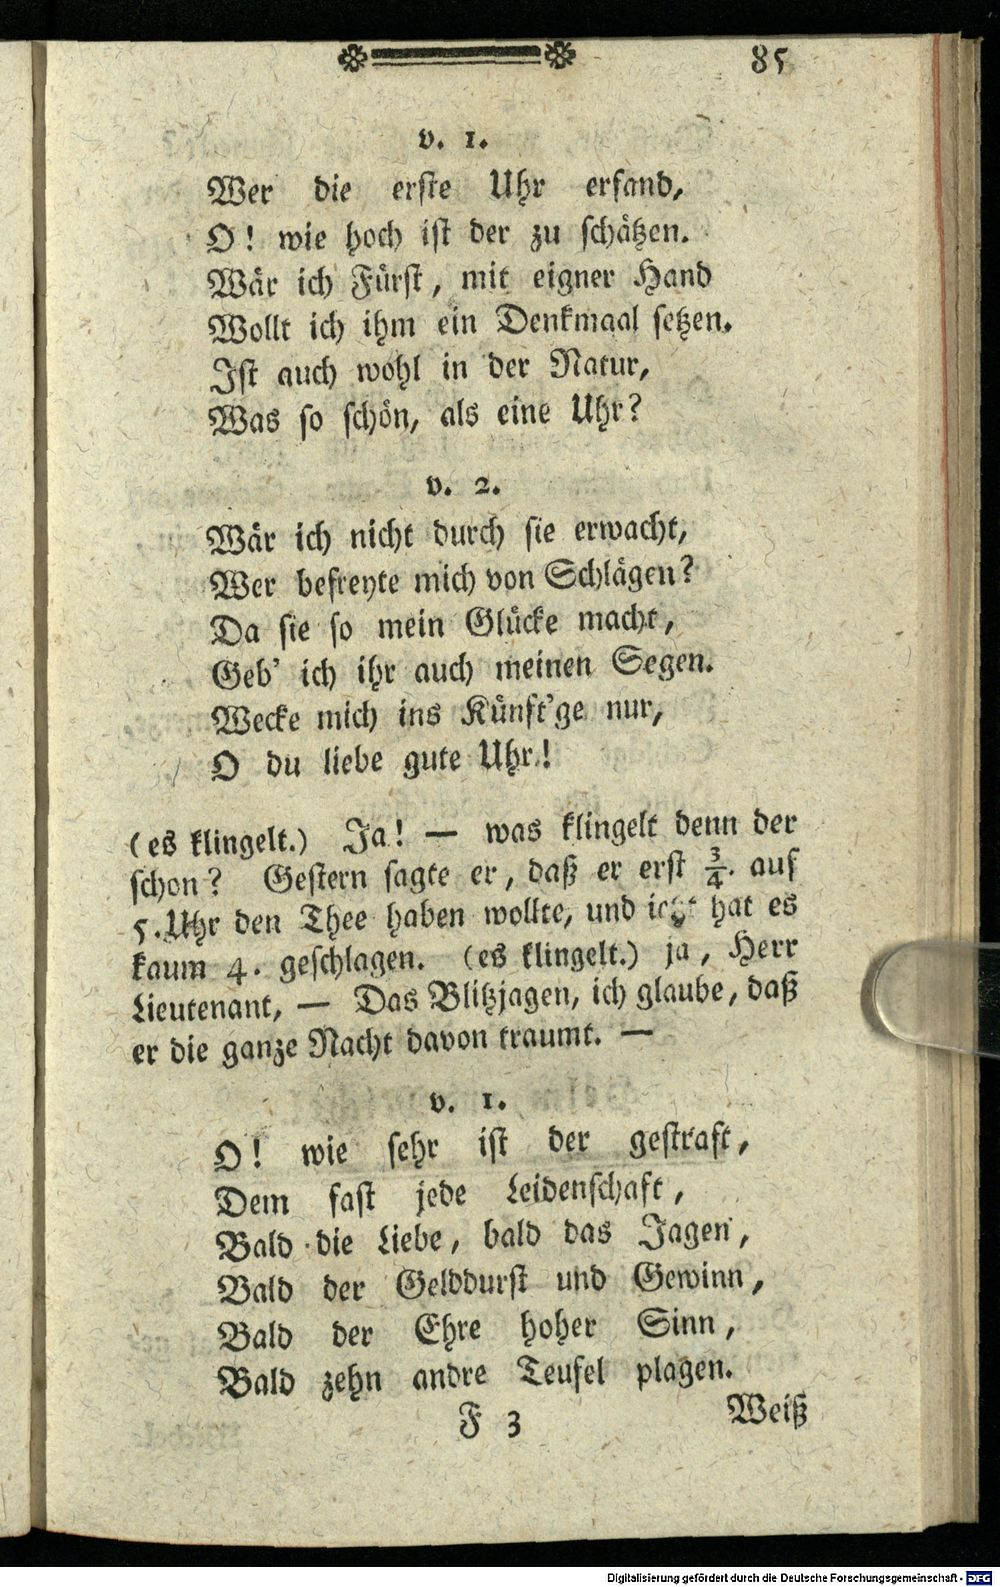 85
v. 1.
Wer die erste Uhr erfand,
O! wie hoch ist der zu schätzen.
Wär ich Fürst, mit eigner Hand
Wollt ich ihm ein Denkmaal setzen.
Ist auch wohl in der Natur,
Was so schön, als eine Uhr?
v. 2.
Wär ich nicht durch sie erwacht,
Wer befreyte mich von Schlägen?
Da sie so mein Glücke macht,
Geb' ich ihr auch meinen Segen.
Wecke mich ins Künft'ge nur,
O du liebe gute Uhr!
(es klingelt.) Ja! — was klingelt denn der
schon? Gestern sagte er, daß er erst 3/4. auf
5. Uhr den Thee haben wollte, und ietzt hat es
kaum 4. geschlagen. (es klingelt.) ja, Herr
Lieutenant, — Das Blitzjagen, ich glaube, daß
er die ganze Nacht davon traumt. —
v. 1.
O! wie sehr ist der gestraft,
Dem fast jede Leidenschaft,
Bald die Liebe, bald das Jagen,
Bald der Gelddurst und Gewinn,
Bald der Ehre hoher Sinn,
Bald zehn andre Teufel plagen.
F 3 Weiß
Digitalisierung gefördert durch die Deutsche Forschungsgemeinschaft - DFG